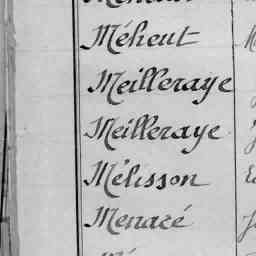 Méheut
Meilleraye
Meilleraye
Mélisson
Menacé